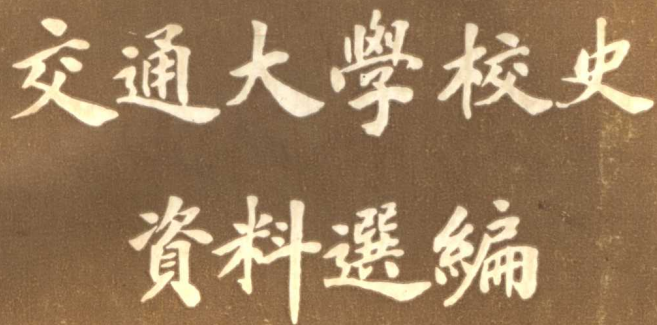 交通大學校史
資料選編